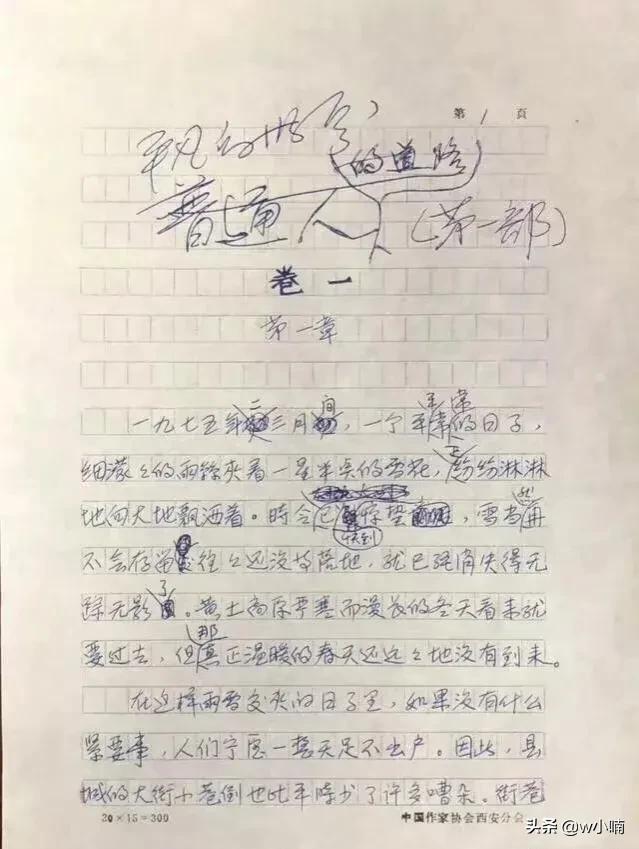 第 1 頁
平凡的世界
(的道路)
普通人 (第一部)
卷一
第一章
二 间 平常
一九七五年三月,一个平常的日子,
正
细濛々的雨丝夹着一星半点的雪花,纷纷淋淋
地向大地飘洒着。时令已快到惊蛰,雪当然再
不会存留,往々还没等落地,就已经消失得无
踪无影了。黄土高原严寒而漫长的冬天看来就
要过去,但那真正温暖的春天还远々地没有到来。
在这样雨雪交夹的日子里,如果没有什么
紧要事,人们宁愿一整天足不出户。因此,县
城的大街小巷倒也比平时少了许多嘈杂。街巷
20×15=300 中国作家协会西安分会
头条 @w小喃